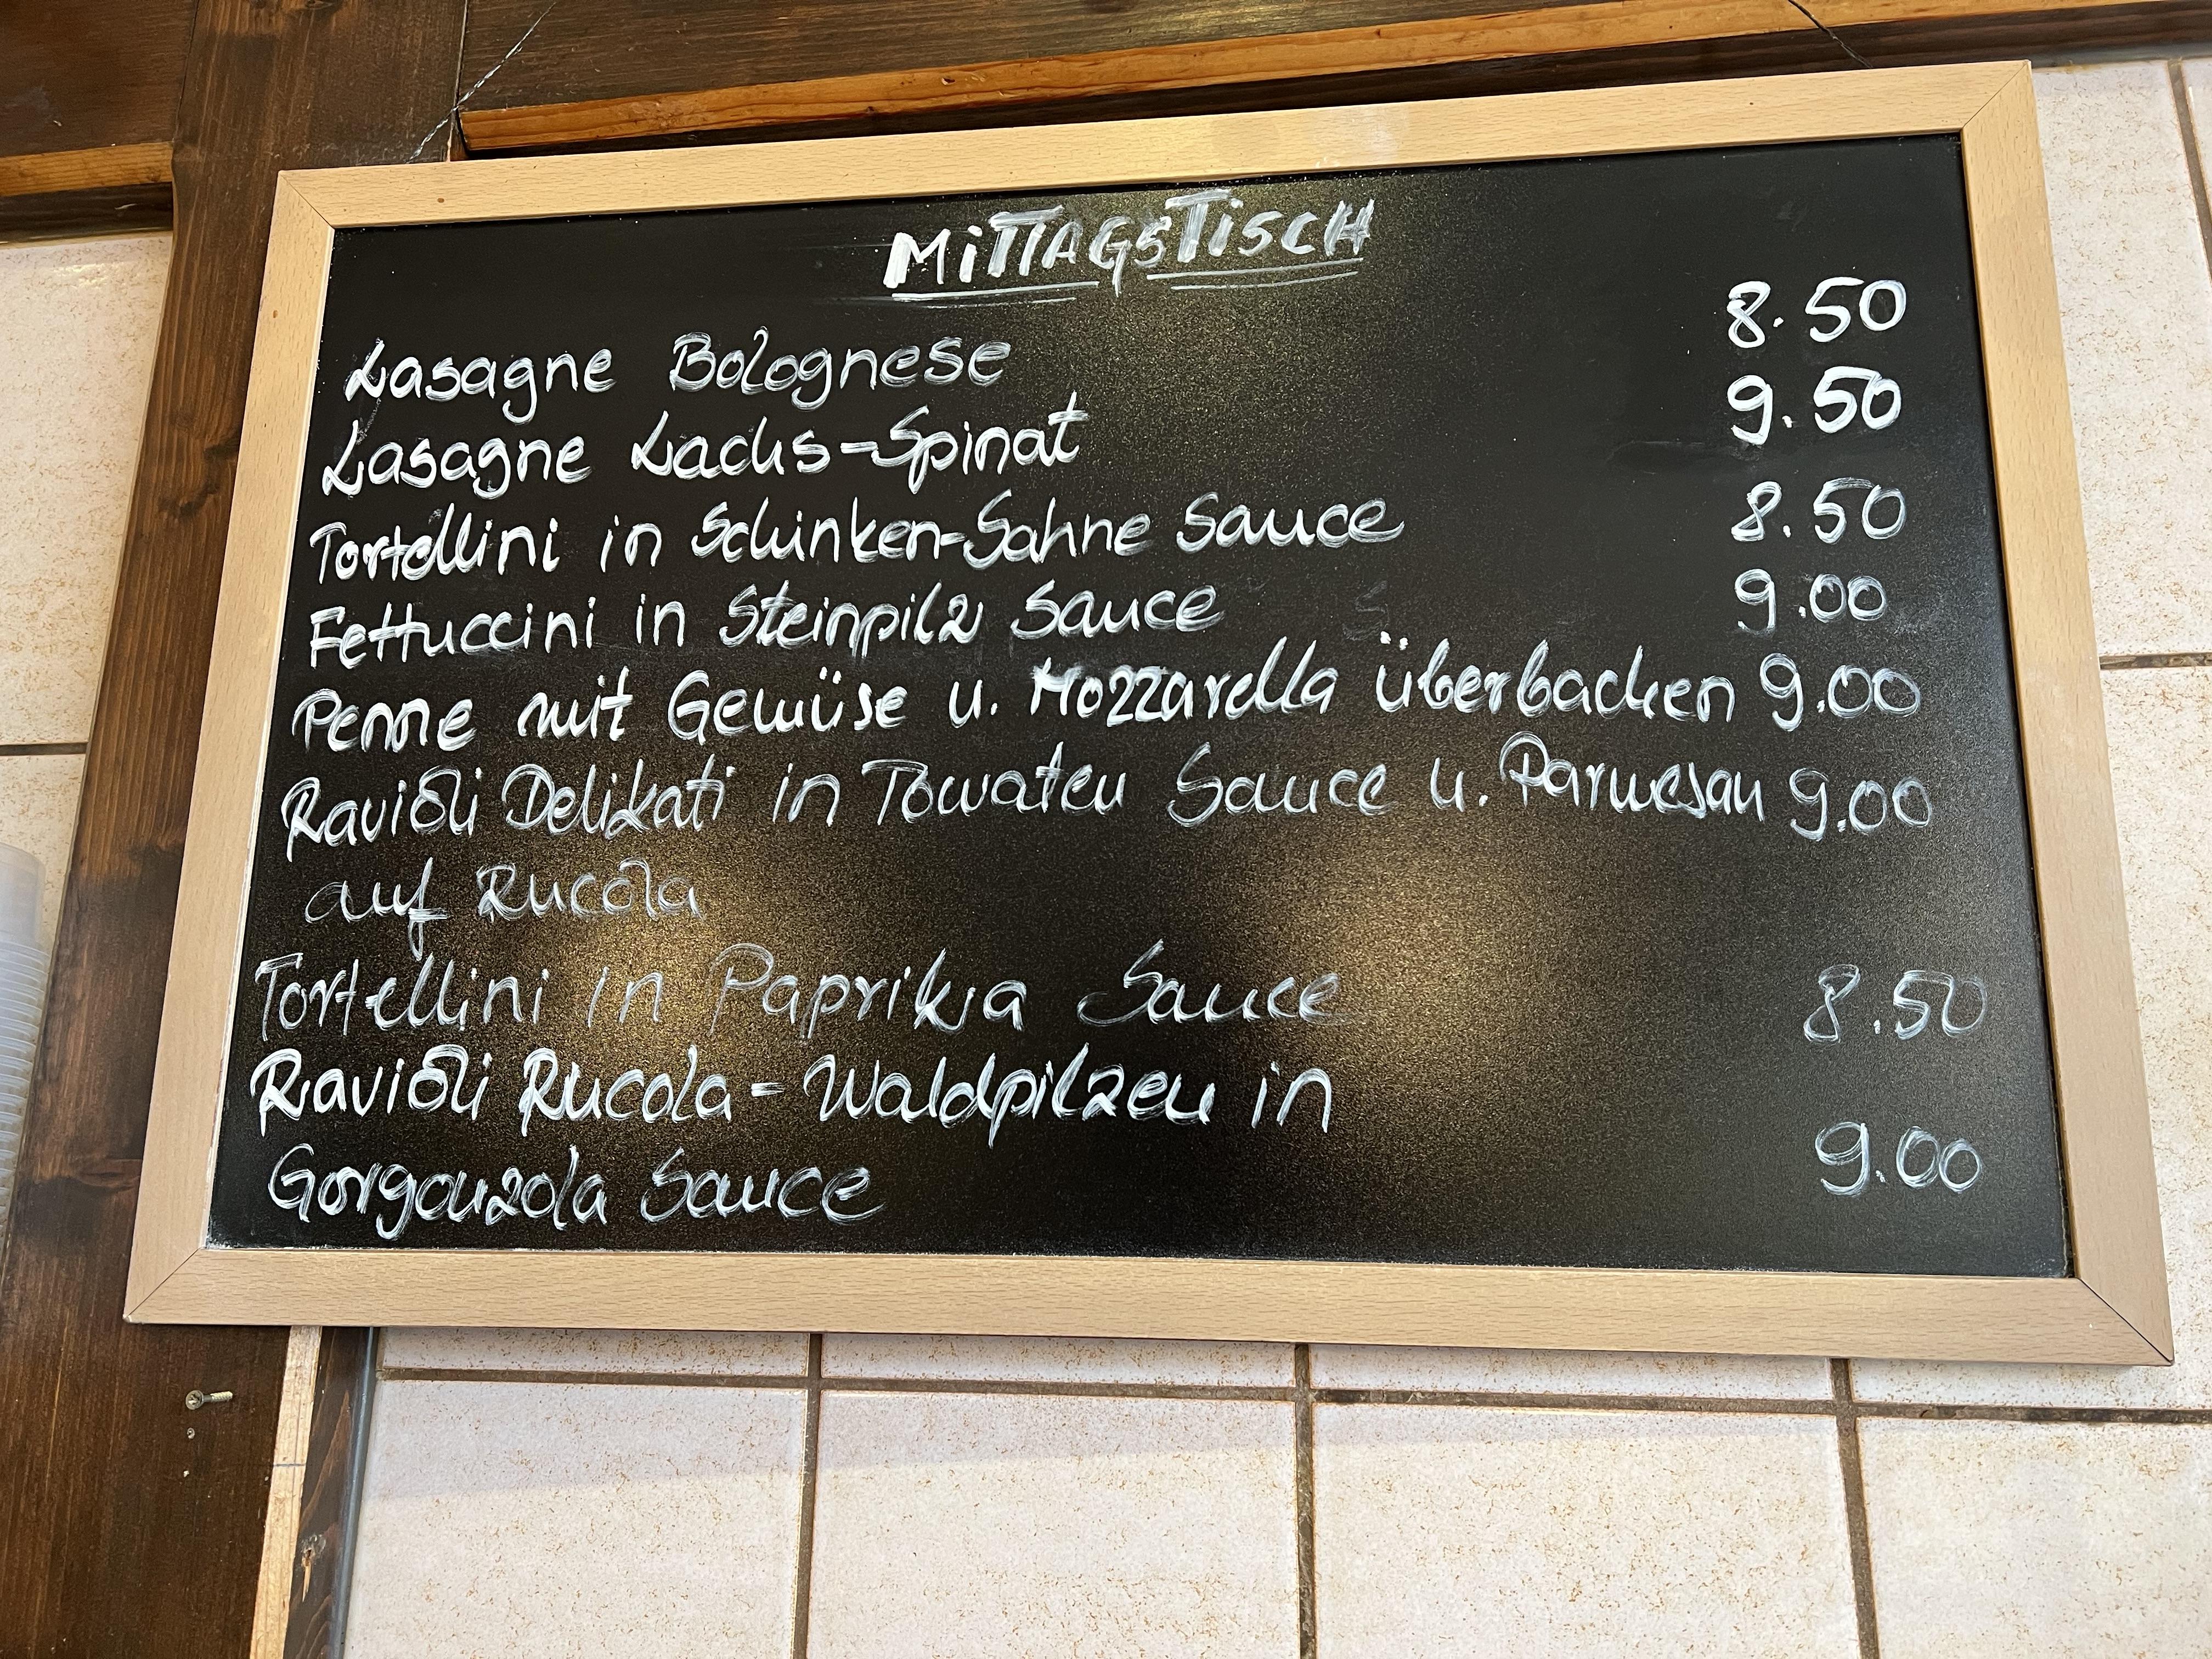 MiTTAGSTiSCH
Lasagne Bolognese 8.50
Lasagne Lachs-Spinat 9.50
Tortellini in Schinken-Sahne Sauce 8.50
Fettuccini in Steinpilz Sauce 9.00
Penne mit Gemüse u. Mozzarella überbacken 9.00
Ravioli Delikati in Tomaten Sauce u. Parmesan 9.00
auf Rucola
Tortellini in Paprika Sauce 8.50
Ravioli Rucola-Waldpilzen in
Gorgonzola Sauce 9.00